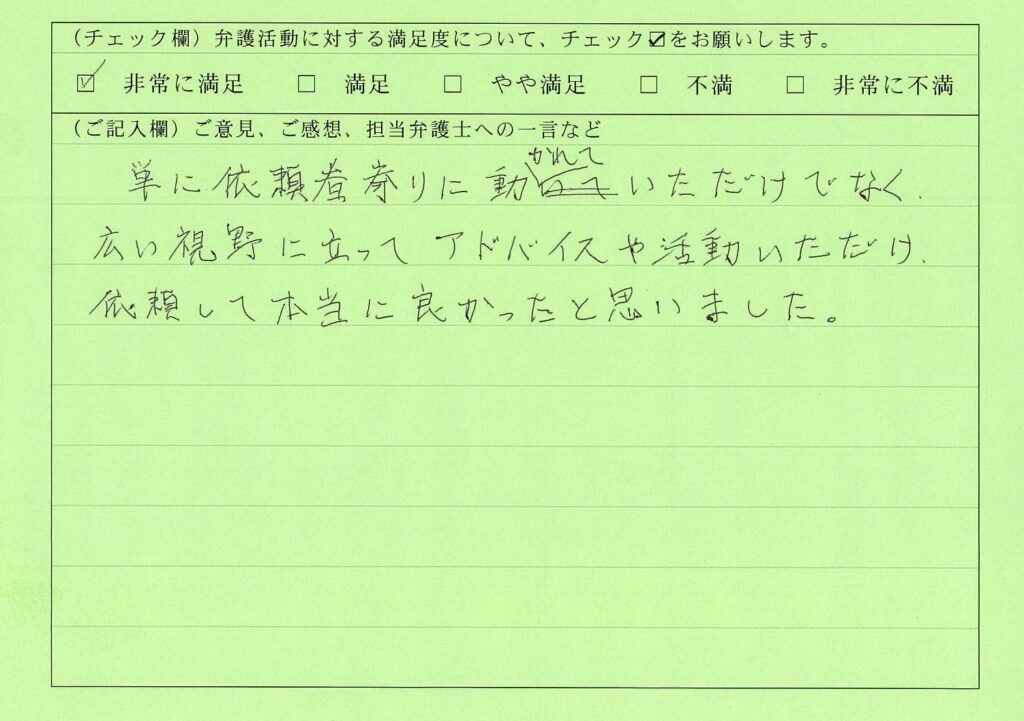 (チェック欄)弁護活動に対する満足度について、チェック☑をお願いします。
☑ 非常に満足 □ 満足 □ やや満足 □ 不満 □ 非常に不満
(ご記入欄)ご意見、ご感想、担当弁護士への一言など
かれて
単に依頼者寄りに動いていただけでなく、
広い視野に立ってアドバイスや活動いただけ、
依頼して本当に良かったと思いました。